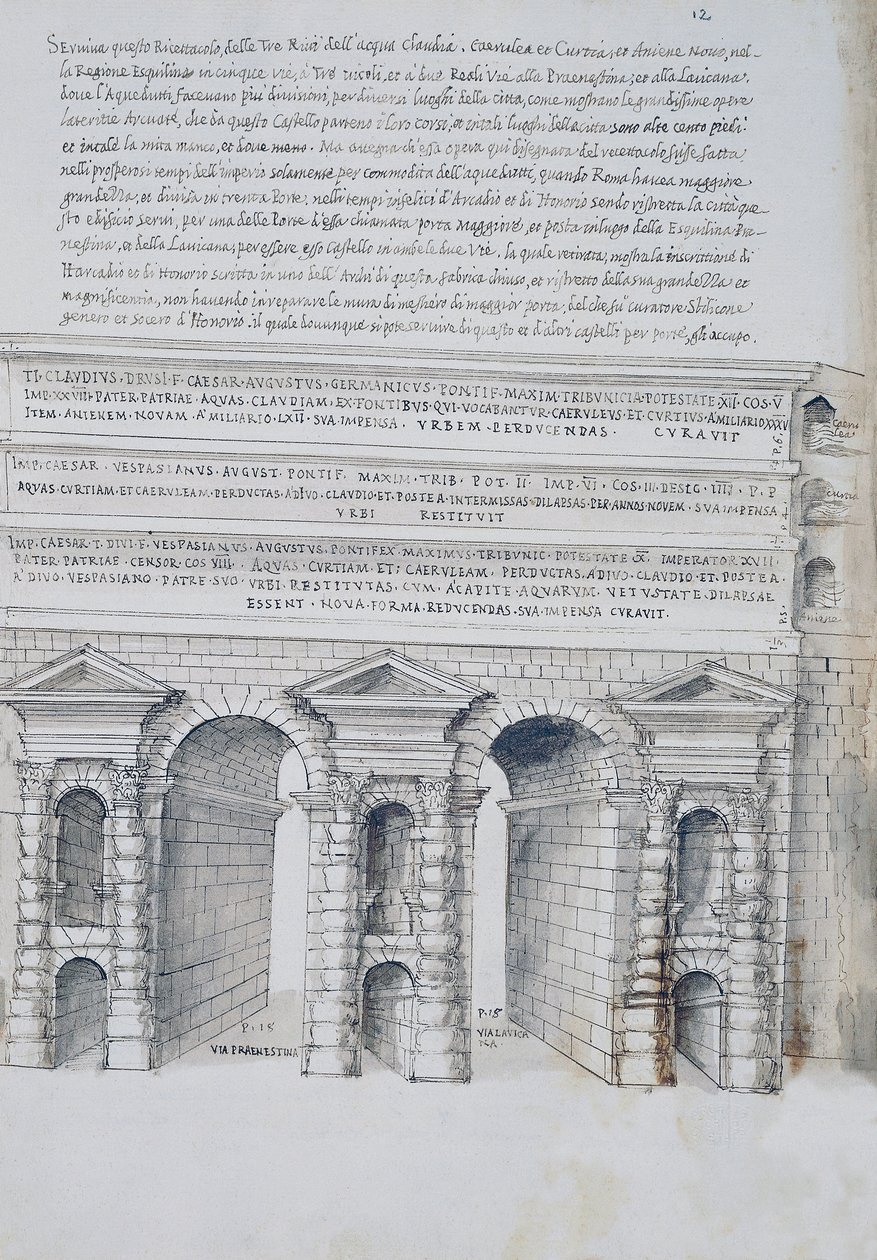 12
SErviva questo Ricettacolo, delle Tre Rivi dell'acqua Claudia. Caerulea et Curtia, et Aniene Novo, nel-
la Regione Esquilina in cinque vie, à Tré vicoli, et à due Reali Vie alla Praenestina, et alla Lavicana,
dove l'Aquedutti facevano piu divisioni, per diversi luoghi della citta, come mostrano le grandissime opere
lateritie Arcuate, che da questo Castello parteno i loro corsi, et in tali luoghi della citta sono alte cento piedi.
et in tale la mita manco, et dove meno. Ma avegna ch'essa opera qui disegnata del recettacolo fusse fatta
nelli prosperosi tempi dell'imperio solamente per commodita dell'aquedutti, quando Roma havea maggiore
grandezza, et divisa in trenta Porte, nelli tempi infelici d'Arcadio et di Honorio sendo ristretta la città que-
sto edificio servi, per una delle Porte d'essa chiamata porta Maggiore, et posta in luogo della Esquilina Pra-
nestina, et della Lavicana, per essere esso castello in ambele due Vie. la quale retirata, mostra la inscrittione di
Harcadio et di Honorio scritta in uno dell'Archi di questa fabrica chiuso, et ristretto della sua grandezza et
magnificentia, non havendo in reparare le mura di meshero di maggior porta, del che fu curatore Stilicone
genero et socero d'Honorio. il quale dovunque si pote servire di questo et d'altri castelli per porte, gli accupo.
TI. CLAVDIVS. DRVSI. F. CAESAR. AVGVSTVS. GERMANICVS. PONTIF. MAXIM. TRIBVNICIA. POTESTATE. XII. COS. V
IMP. XXVII. PATER. PATRIAE. AQVAS. CLAVDIAM. EX. FONTIBVS. QVI. VOCABANTVR. CAERVLEVS. ET. CVRTIVS. A MILIARIO XXXV
ITEM. ANIENEM. NOVAM. A' MILIARIO. LXII. SVA. IMPENSA. VRBEM. PERDVCENDAS. CVRAVIT
Caeru
lea
P. 6.
IMP. CAESAR. VESPASIANVS. AVGVST. PONTIF. MAXIM. TRIB. POT. II. IMP. VI. COS. III. DESIG. IIII. P. P
AQVAS. CVRTIAM. ET CAERVLEAM. PERDVCTAS. A DIVO. CLAVDIO. ET. POSTEA. INTERMISSAS. DILAPSAS. PER. ANNOS. NOVEM. SVA IMPENSA
VRBI RESTITVIT
Curtia
IMP. CAESAR. T. DIVI. F. VESPASIANVS. AVGVSTVS. PONTIFEX. MAXIMVS. TRIBVNIC. POTESTATE. X. IMPERATOR XVII
PATER. PATRIAE. CENSOR. COS VIII. AQVAS. CVRTIAM. ET. CAERVLEAM. PERDVCTAS. A DIVO. CLAVDIO. ET. POSTEA.
A' DIVO. VESPASIANO. PATRE. SVO. VRBI. RESTITVTAS. CVM. A'CAPITE. AQVARVM. VETVSTATE. DILAPSAE
ESSENT. NOVA. FORMA. REDVCENDAS. SVA. IMPENSA CVRAVIT.
P. 5.
Aniene
P. 18
VIA PRAENESTINA
P. 18
VIA LAVICA
NA.